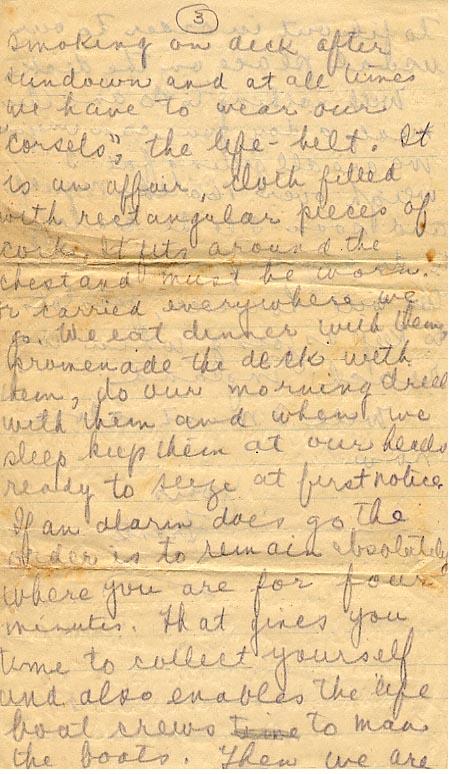 3
smoking on deck after
sundown and at all times
we have to wear our
"corsets", the life-belt. It
is an affair, cloth filled
with rectangular pieces of
cork, it fits around the
chest and must be worn
or carried everywhere we
go. We eat dinner with them,
promenade the deck with
them, do our morning drill
with them and when we
sleep keep them at our heads
ready to seize at first notice.
If an alarm does go the
order is to remain absolutely
where you are for four
minutes. That gives you
time to collect yourself
and also enables the life
boat crews time to man
the boats. Then we are